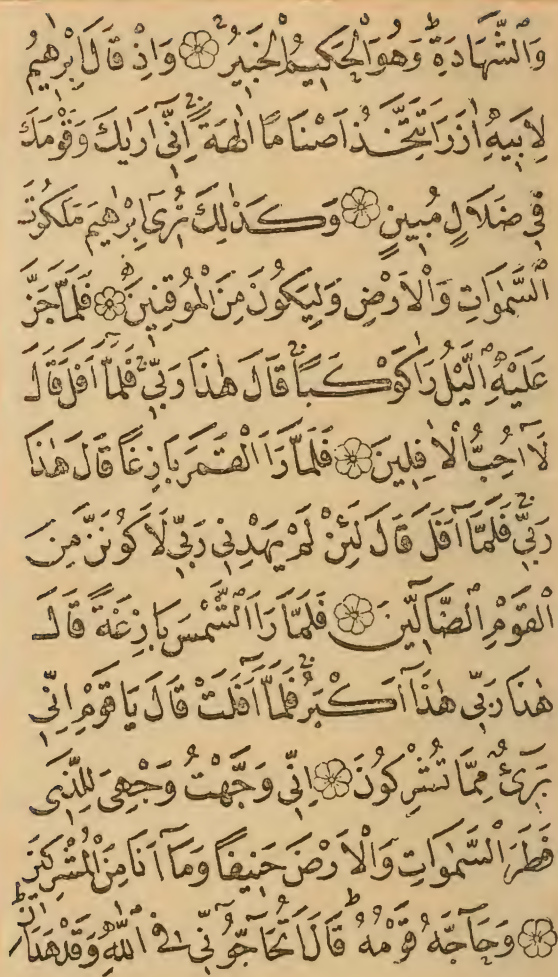 وَالشَّهَادَةِ وَهُوَ الْحَكِيمُ الْخَبِيرُ ۝ وَاِذْ قَالَ اِبْرٰهِيمُ
لِاَبِيهِ اٰزَرَ اَتَتَّخِذُ اَصْنَامًا اٰلِهَةً اِنِّٓى اَرٰيكَ وَقَوْمَكَ
فِى ضَلَالٍ مُبِينٍ ۝ وَكَذٰلِكَ نُرِٓى اِبْرٰهِيمَ مَلَكُوتَ
السَّمٰوَاتِ وَالْاَرْضِ وَلِيَكُونَ مِنَ الْمُوقِنِينَ ۝ فَلَمَّا جَنَّ
عَلَيْهِ الَّيْلُ رَاٰ كَوْكَبًا قَالَ هٰذَا رَبِّى فَلَمَّٓا اَفَلَ قَالَ
لَٓا اُحِبُّ الْاٰفِلِينَ ۝ فَلَمَّا رَاَ الْقَمَرَ بَازِغًا قَالَ هٰذَا
رَبِّى فَلَمَّٓا اَفَلَ قَالَ لَئِنْ لَمْ يَهْدِنِى رَبِّى لَاَكُونَنَّ مِنَ
الْقَوْمِ الضَّٓالِّينَ ۝ فَلَمَّا رَاَ الشَّمْسَ بَازِغَةً قَالَ
هٰذَا رَبِّى هٰذَٓا اَكْبَرُ فَلَمَّٓا اَفَلَتْ قَالَ يَا قَوْمِ اِنِّى
بَرِٓىءٌ مِمَّا تُشْرِكُونَ ۝ اِنِّى وَجَّهْتُ وَجْهِىَ لِلَّذِى
فَطَرَ السَّمٰوَاتِ وَالْاَرْضَ حَنِيفًا وَمَٓا اَنَا مِنَ الْمُشْرِكِينَ
۝ وَحَٓاجَّهُ قَوْمُهُ قَالَ اَتُحَٓاجُّٓونِّى فِى اللّٰهِ وَقَدْ هَدَانِ